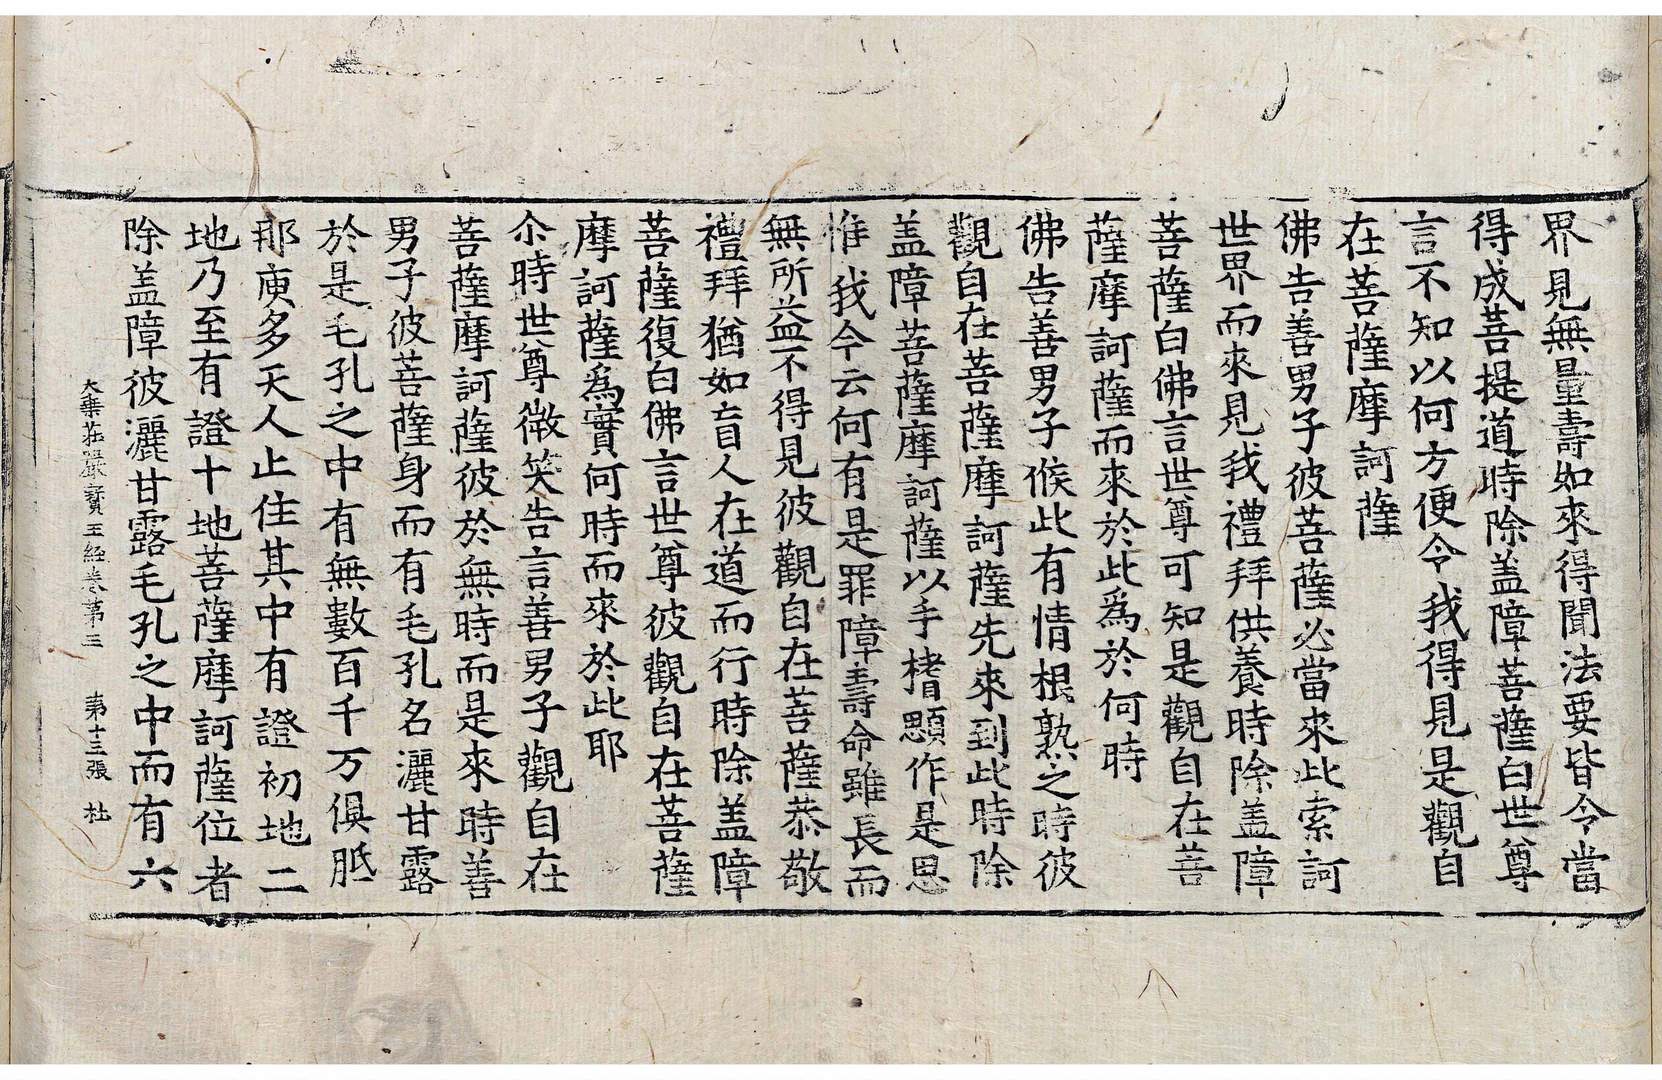 界見無量壽如來得聞法要皆令當
得成菩提道時除盖障菩薩白世尊
言不知以何方便令我得見是觀自
在菩薩摩訶薩
佛告善男子彼菩薩必當來此索訶
世界而來見我禮拜供養時除盖障
菩薩白佛言世尊可知是觀自在菩
薩摩訶薩而來於此為於何時
佛告善男子候此有情根熟之時彼
觀自在菩薩摩訶薩先來到此時除
盖障菩薩摩訶薩以手楮顋作是思
惟我今云何有是罪障壽命雖長而
無所益不得見彼觀自在菩薩恭敬
禮拜猶如盲人在道而行時除盖障
菩薩復白佛言世尊彼觀自在菩薩
摩訶薩爲實何時而來於此耶
尒時世尊微笑告言善男子觀自在
菩薩摩訶薩彼於無時而是來時善
男子彼菩薩身而有毛孔名灑甘露
於是毛孔之中有無數百千万俱胝
那庾多天人止住其中有證初地二
地乃至有證十地菩薩摩訶薩位者
除盖障彼灑甘露毛孔之中而有六
大乗莊嚴寳王經卷第三 第十三張 杜